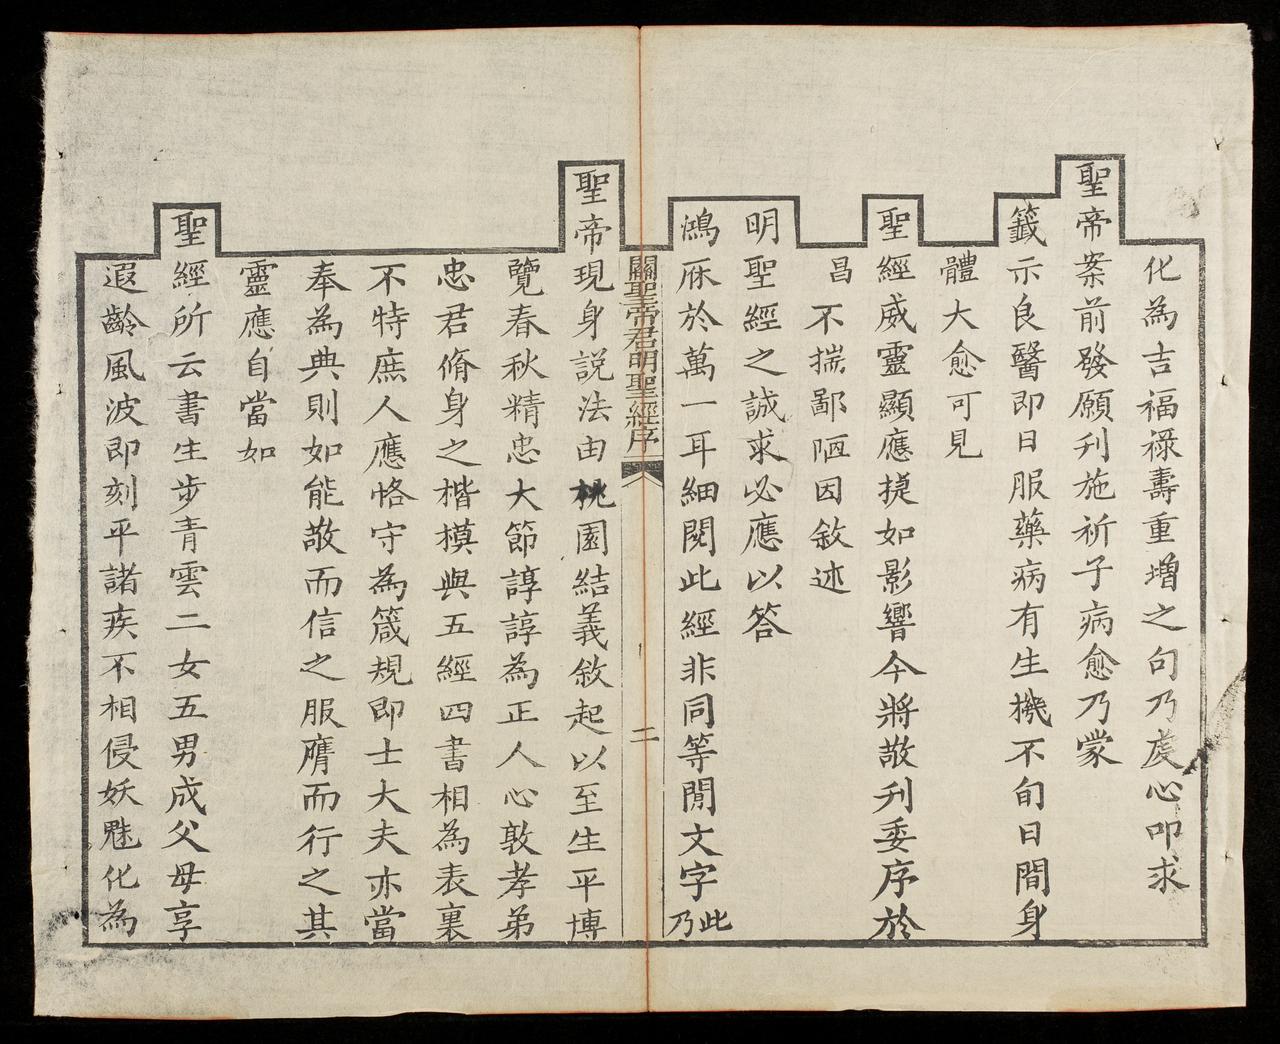 化為吉福祿壽重增之句乃虔心叩求
聖帝案前發願刋施祈子病愈乃蒙
籤示良醫即日服藥病有生機不旬日間身
體大愈可見
聖經威靈顯應捷如影響今將敬刋委序於
昌不揣鄙陋因敘述
明聖經之誠求必應以答
鴻庥於萬一耳細閱此經非同等閒文字此乃
關聖帝君明聖經序
二
聖帝現身說法由桃園結義敘起以至生平博
覽春秋精忠大節諄諄為正人心敦孝弟
忠君脩身之楷模與五經四書相為表裏
不特庶人應恪守為箴規即士大夫亦當
奉為典則如能敬而信之服膺而行之其
靈應自當如
聖經所云書生步青雲二女五男成父母享
遐齡風波即刻平諸疾不相侵妖魅化為